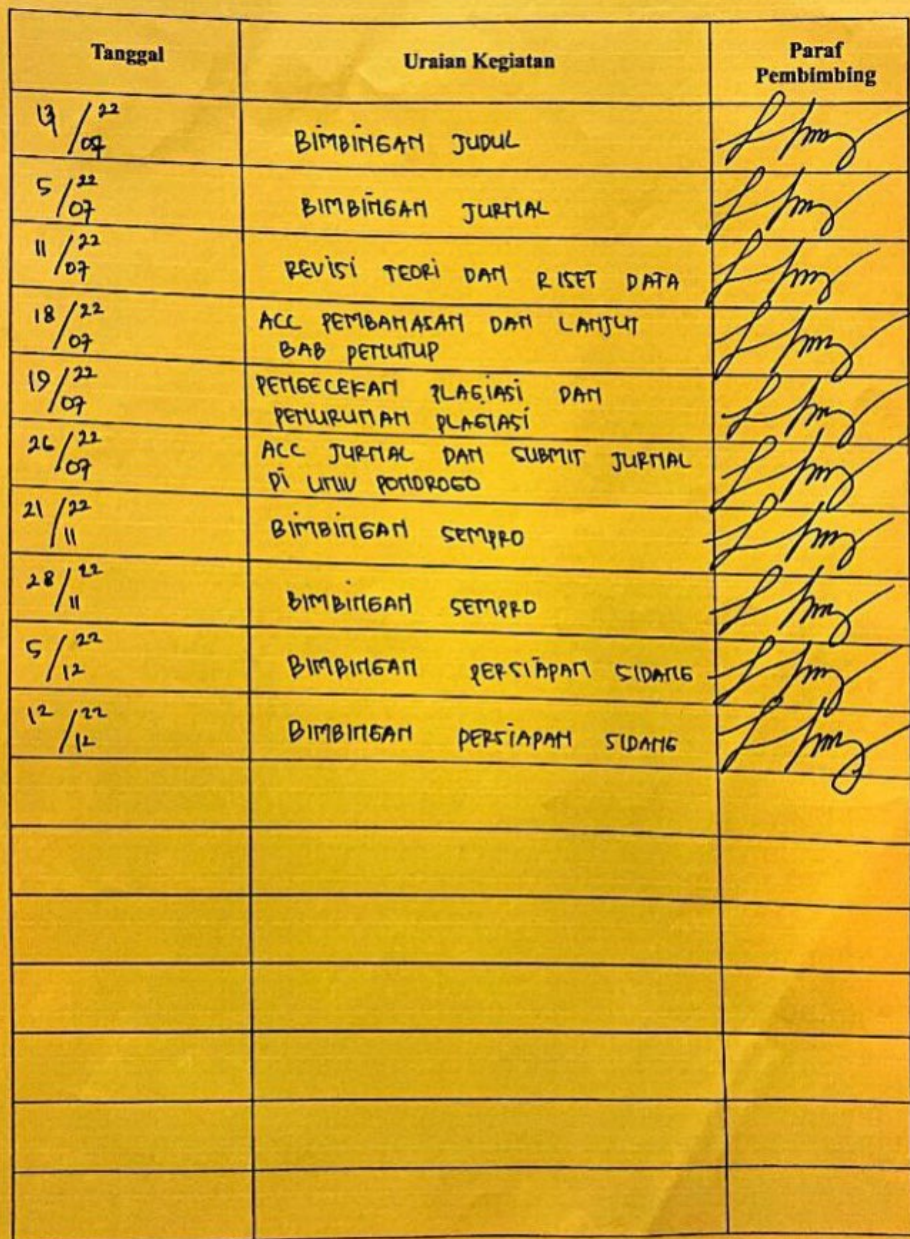 Tanggal Uraian Kegiatan Paraf
Pembimbing
/22
BIMBINGAN JUDUL
5/22
07 BIMBINGAN JURNAL
11/22
07 REVISI TEORI DAN RISET DATA
18/22
07 ACC PEMBAHASAN DAN LANJUT
BAB PENUTUP
19/22
07 PENGECEKAN PLAGIASI DAN
PENURUNAN PLAGIASI
26/22
07 ACC JURNAL DAN SUBMIT JURNAL
DI UNIV PONOROGO
21/22
11 BIMBINGAN SEMPRO
28/22
11 BIMBINGAN SEMPRO
5/22
12 BIMBINGAN PERSIAPAN SIDANG
12/22
12 BIMBINGAN PERSIAPAN SIDANG